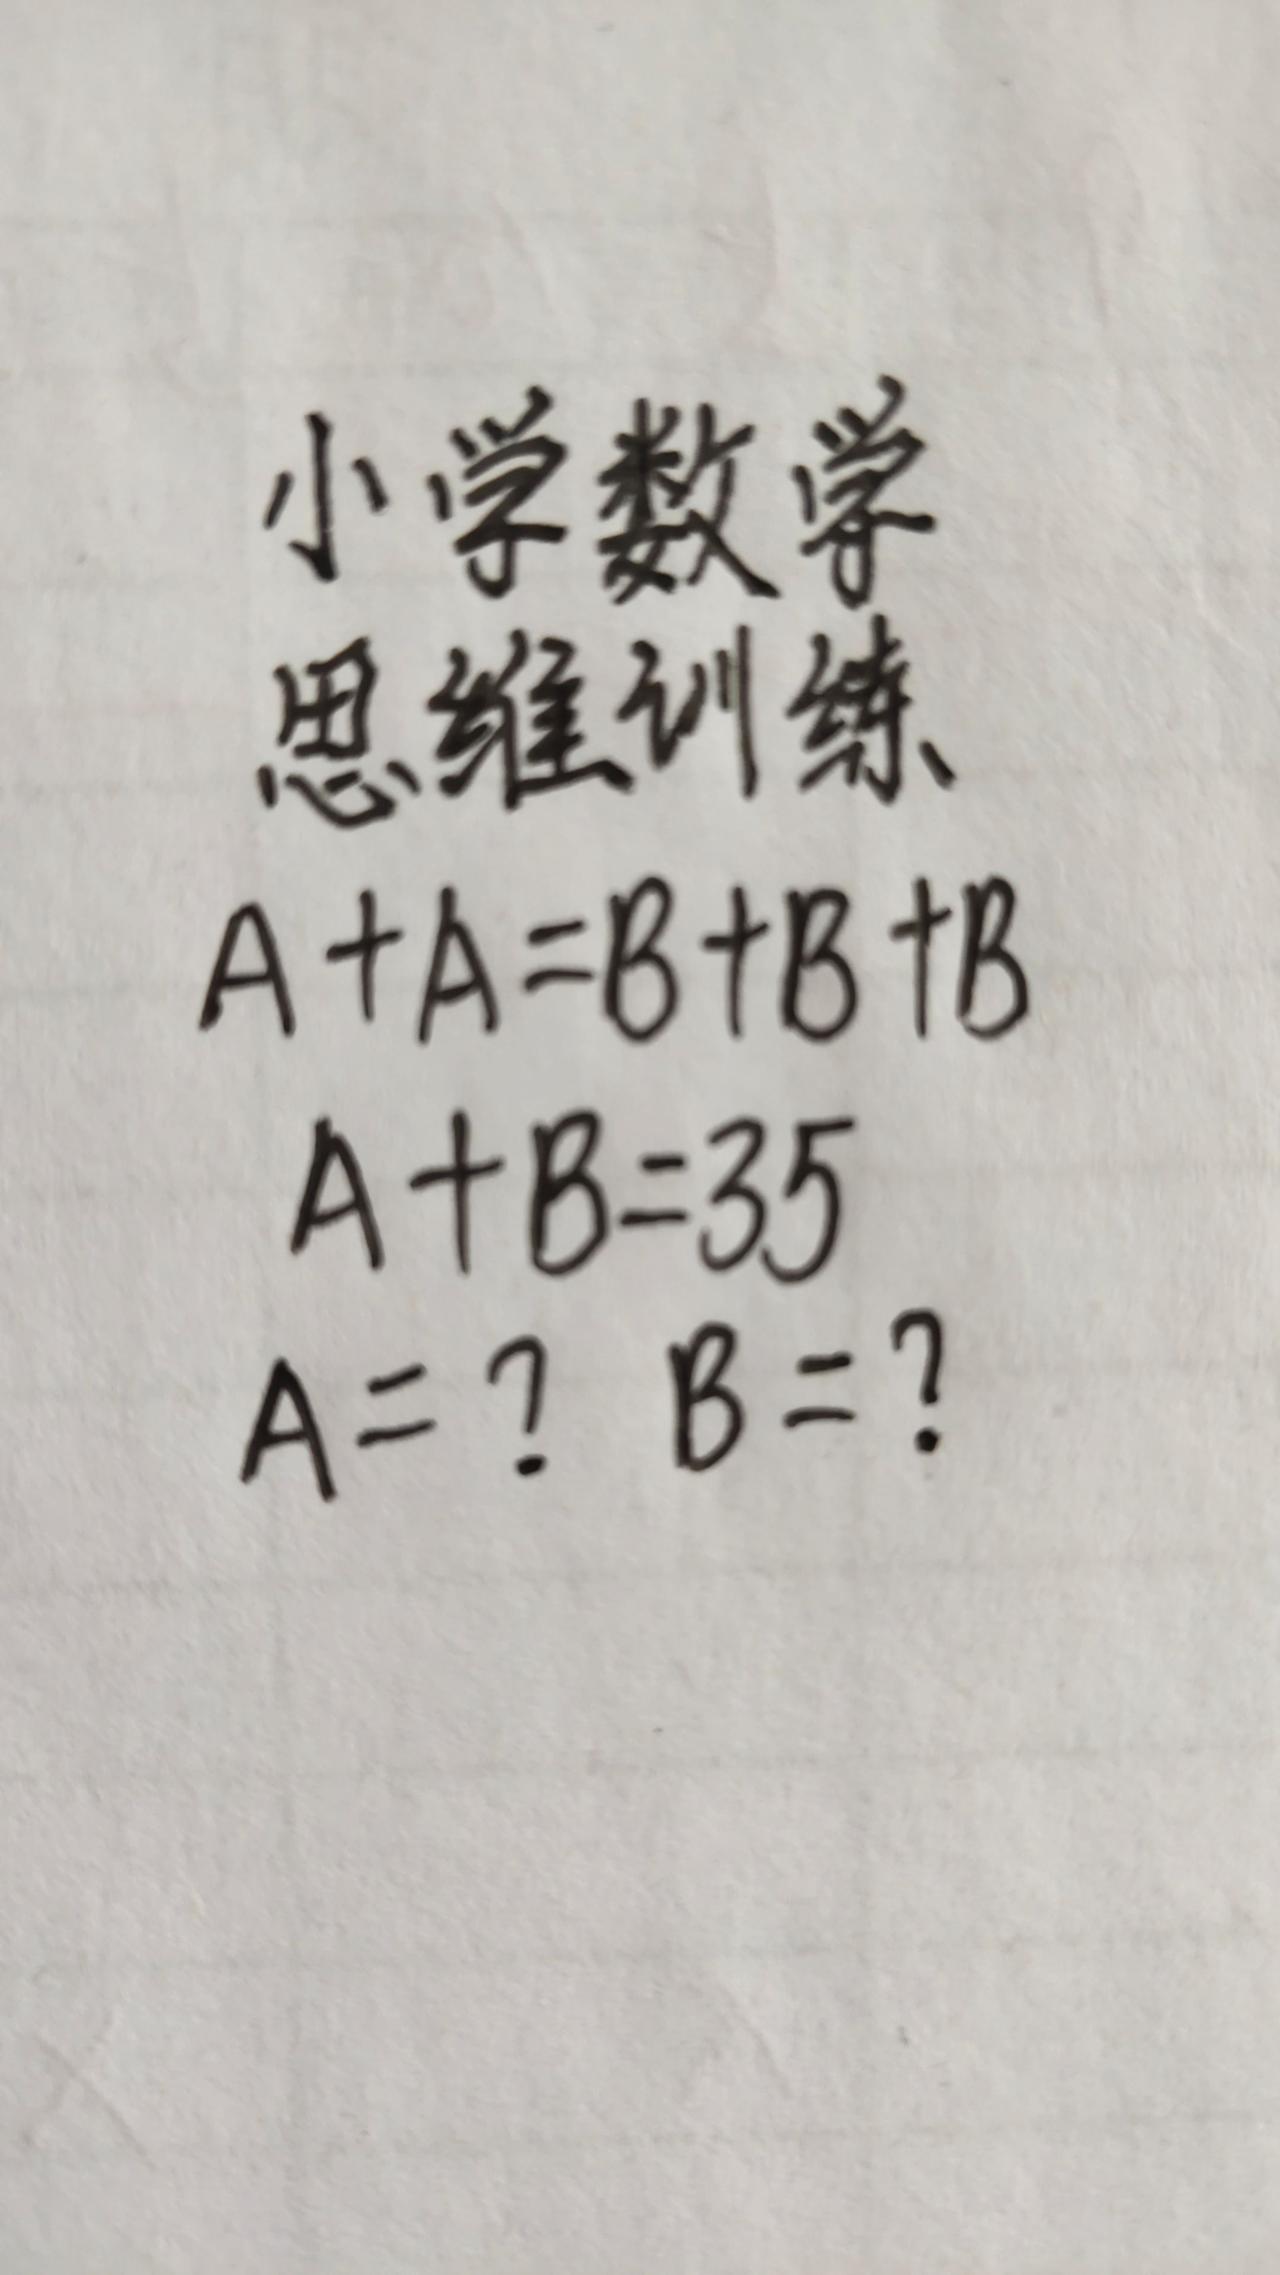 小学数学
思维训练
A+A=B+B+B
A+B=35
A=? B=?